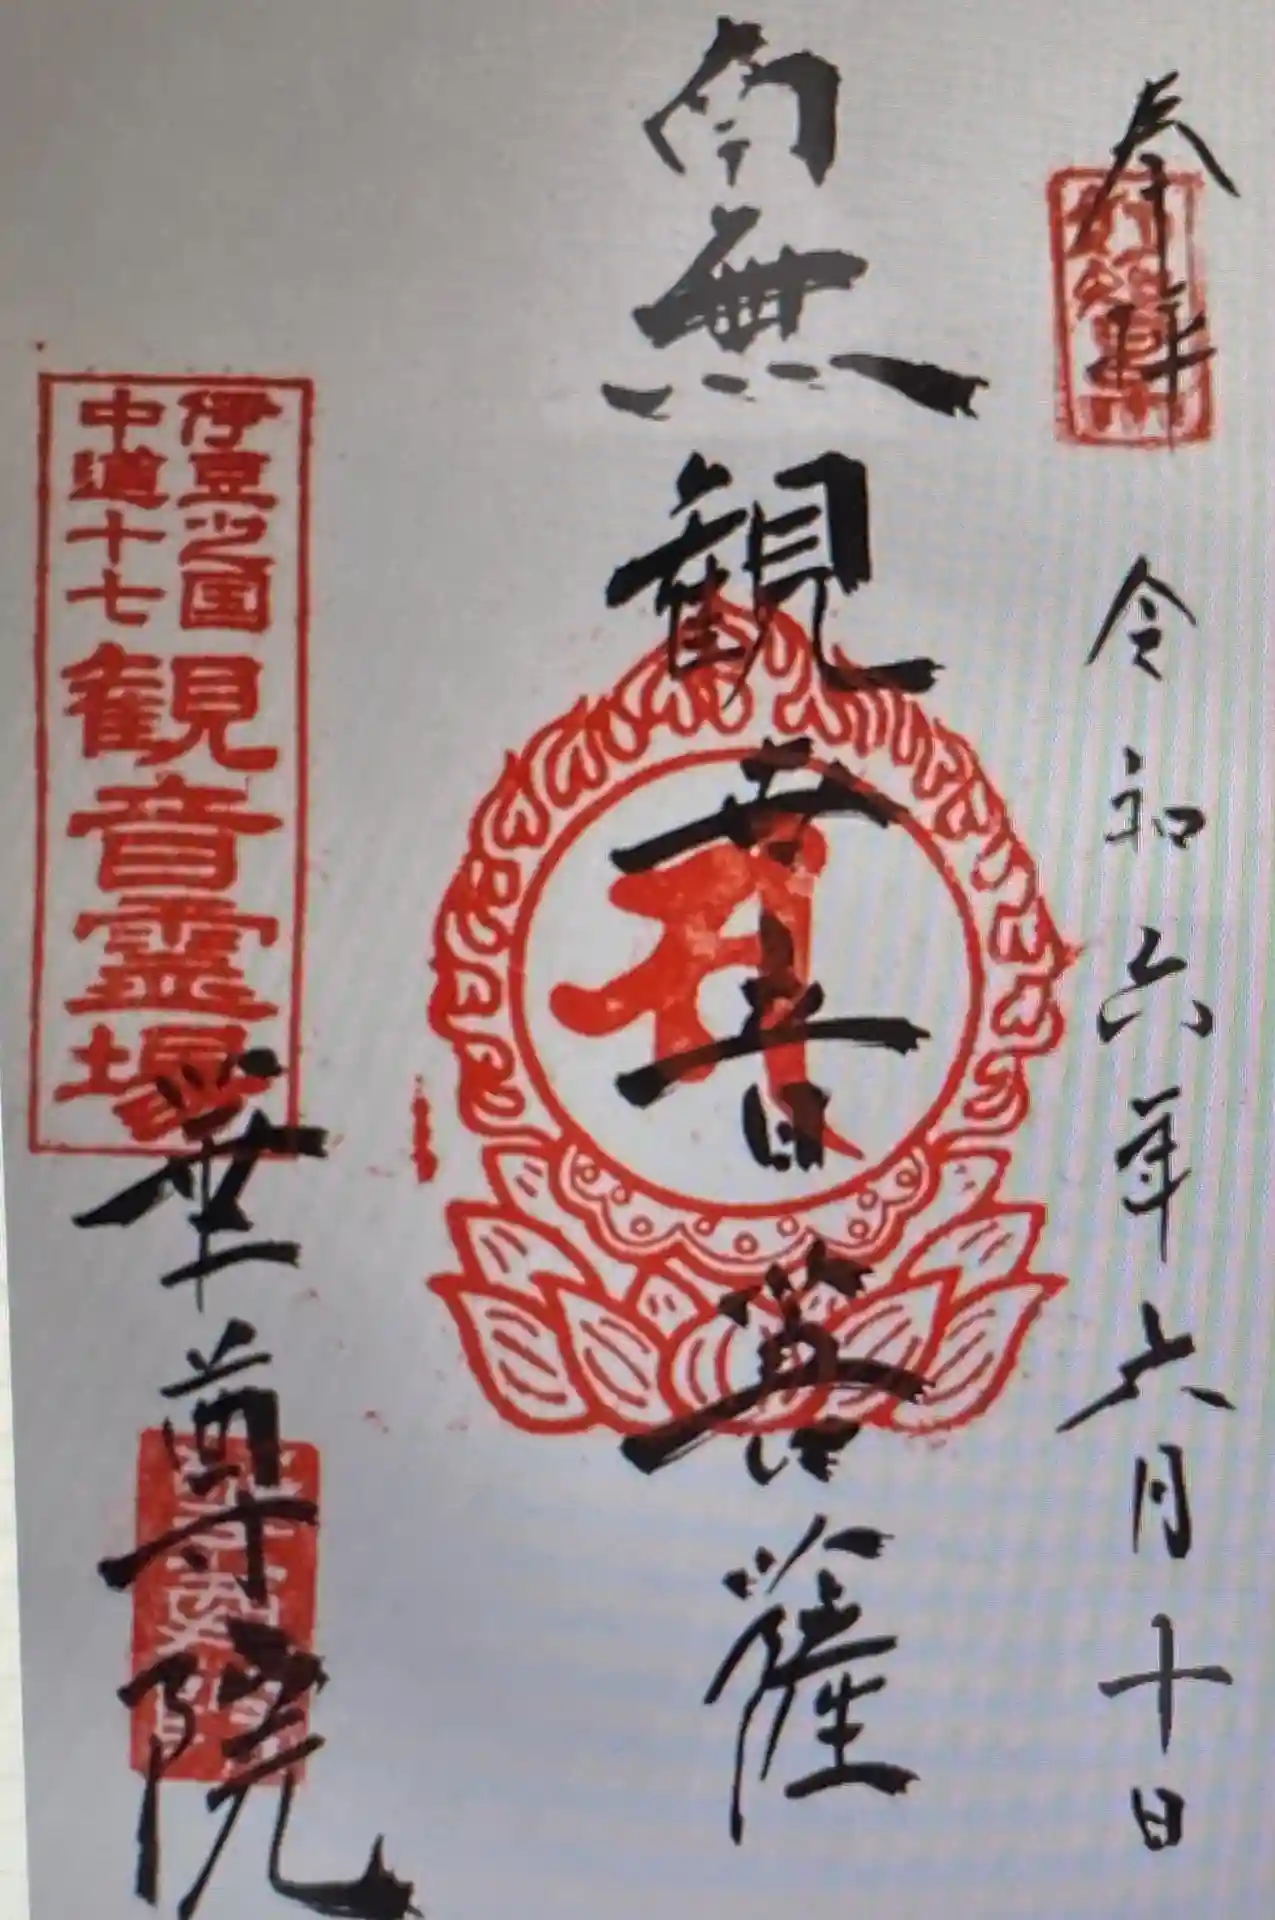 奉拝
令和六年六月十日
南無観世音菩薩
伊豆之国
中道十七
観音霊場
尊院